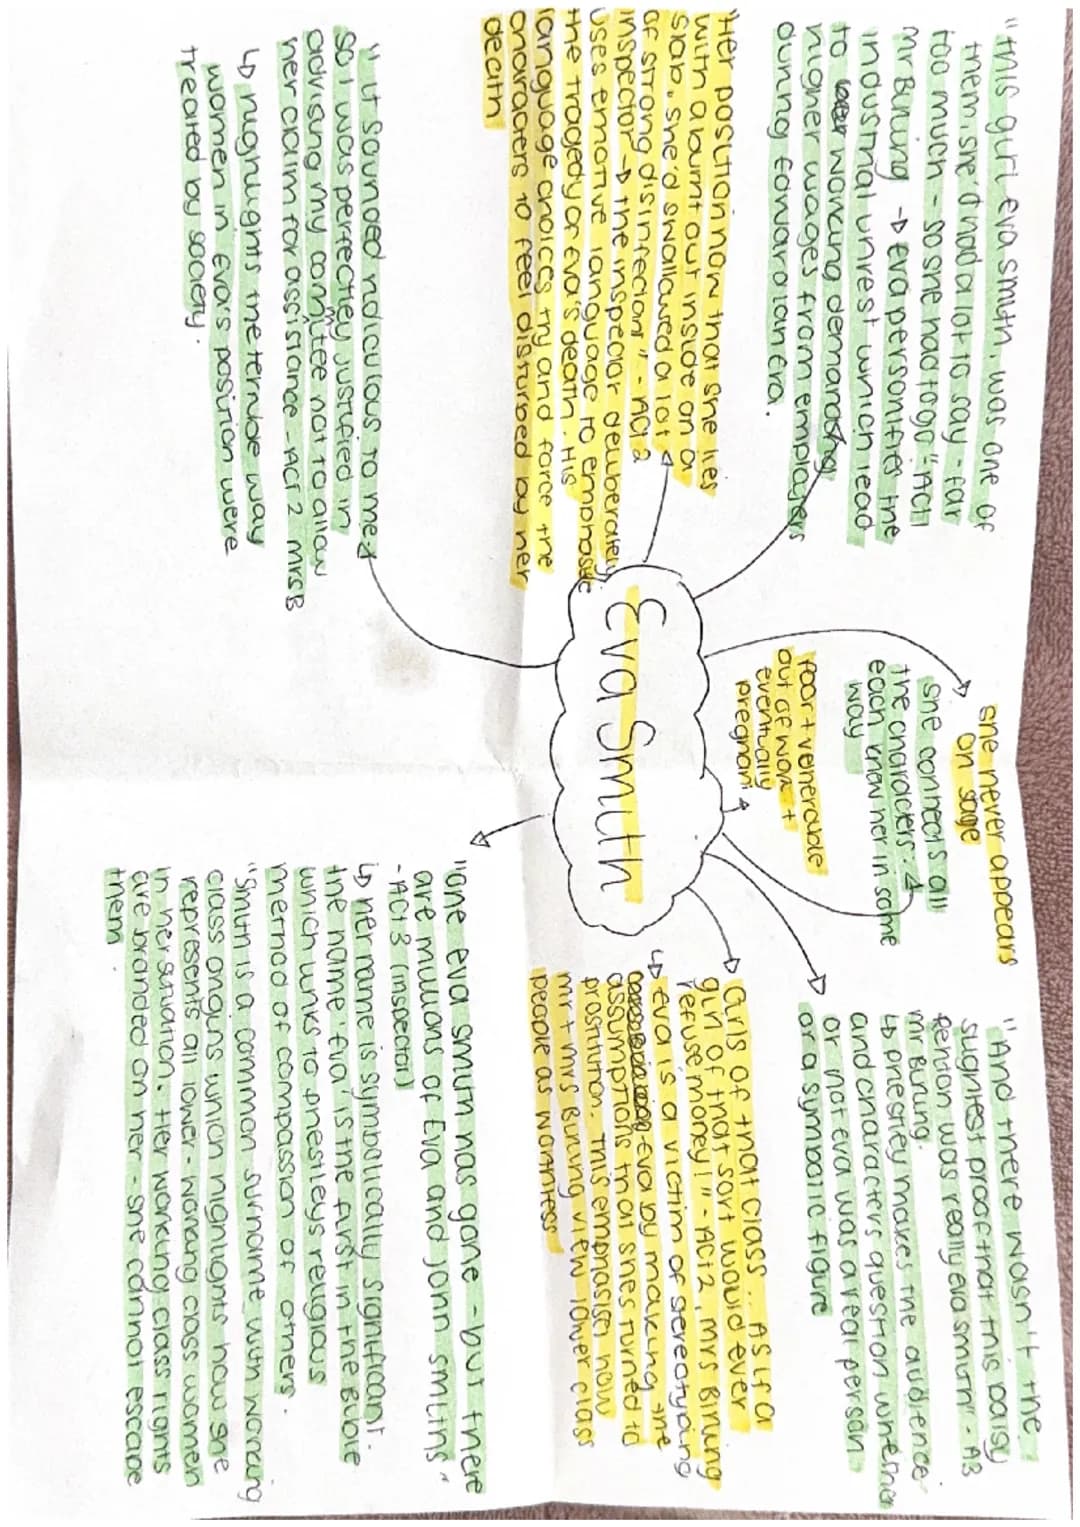 "this girl, eva smith, was one of
them, she'd had a lot to say - far
too much - so she had to go" - Act 1
mr Birling → Eva personifies the
industrial unrest which lead
to working demanding
higher wages from employers
during Edwardian Era.
"Her position now that she lies
with a burnt out inside on a
slab, she'd swallowed a lot
of strong disinfectant" - Act 2
inspector → the inspector deliberately
uses emotive language to emphasise
the tragedy of Eva's death. His
language choices try and force the
characters to feel disturbed by her
death
"it sounded ridiculous to me,
so I was perfectley justified in
advising my commitee not to allow
her claim for assistance - Act 2 mrs B
↳ highlights the terrible way
women in Eva's position were
treated by society.
she never appears
on sage
she connects all
the characters -
each knew her in some
way
Poor + venerable
out of work +
eventually
pregnant
Eva Smith
"And there wasn't the
slightest proof that this Daisy
Renton was really eva smith" - A3
mr Birling.
↳ priestley makes the audience
and characters question whether
or not eva was a real person
or a symbolic figure
Girls of that class... As if a
girl of that sort would ever
refuse money!" - Act 2, mrs Birling
↳ eva is a victim of stereotyping
eva by making the
assumptions that shes turned to
prostitution. This emphasises how
mr + mrs Birling view lower class
people as worthless
"one eva smith has gone - but there
are millions of Eva and John smiths"
- Act 3 (inspector)
↳ her name is symbolically significant.
the name 'Eva' is the first in the Bible
which links to priestleys religious
method of compassion of others.
"Smith is a common surname with working
class origins which highlights how she
represents all lower-working class women
in her situation. Her working class rights
are branded on her - she cannot escape
them.